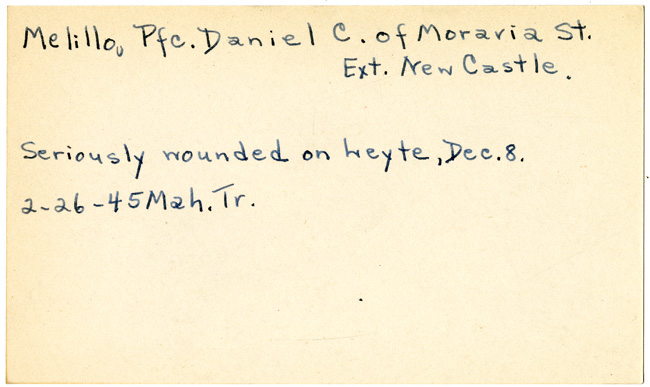 Melillo, Pfc. Daniel C. of Moravia St.
Ext. New Castle.
Seriously wounded on Leyte, Dec. 8.
2-26-45 Mah. Tr.